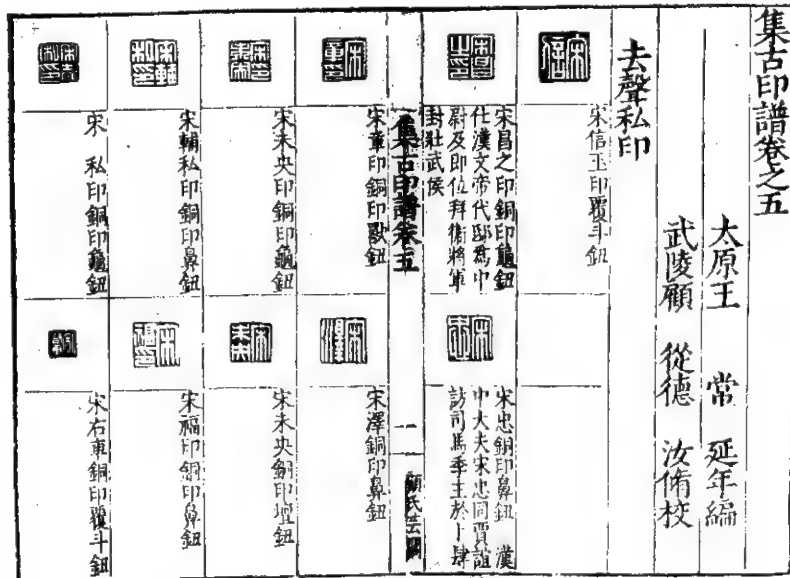 集古印譜卷之五
太原王 常 延年編
武陵顧 從德 汝脩校
去聲私印
宋信
宋信玉印覆斗鈕
宋昌之印
宋昌之印銅印龜鈕
仕漢文帝代邸爲中
尉及即位拜衞將軍
封壯武侯
宋忠
宋忠銅印鼻鈕 漢
中大夫宋忠同賈誼
訪司馬季主於卜肆
集古印譜卷五
一
顧氏芸閣
宋章印銅印獸鈕
宋澤
宋澤銅印鼻鈕
宋未央印銅印龜鈕
宋未央銅印壇鈕
宋輔私印銅印鼻鈕
宋福印銅印鼻鈕
宋 私印銅印龜鈕
宋右車銅印覆斗鈕